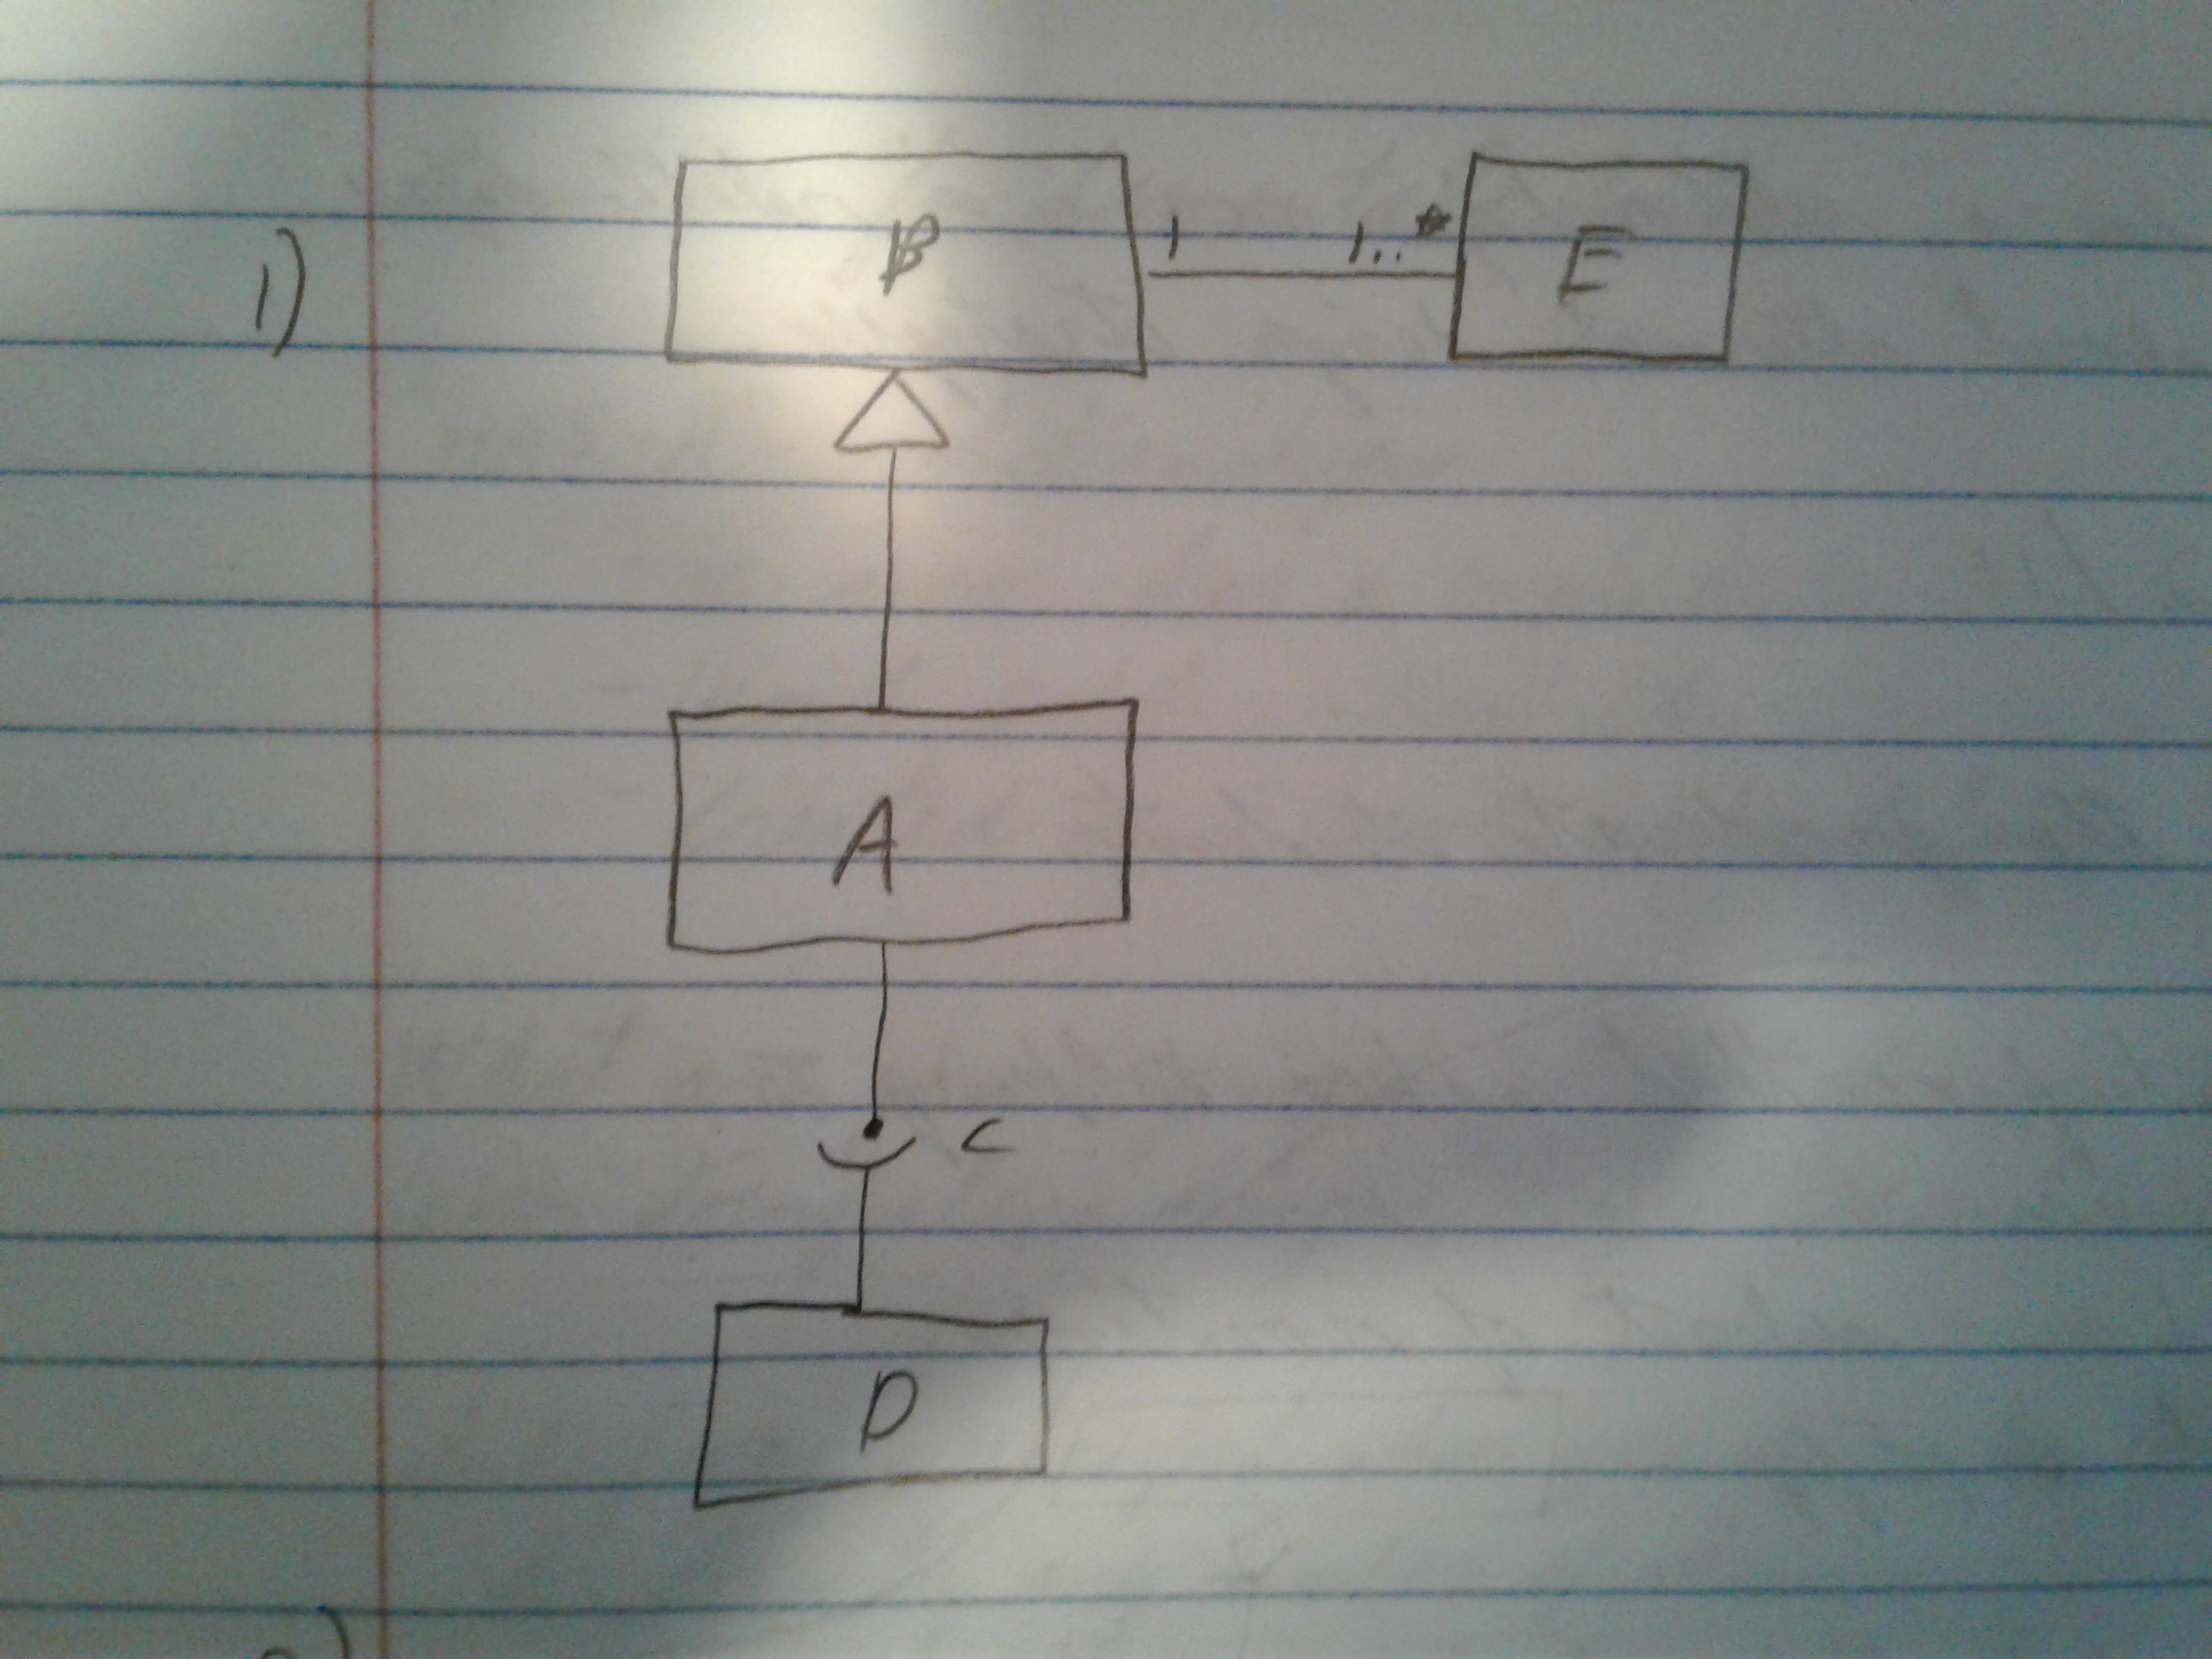 1)
B 1 1..* E
A
C
D